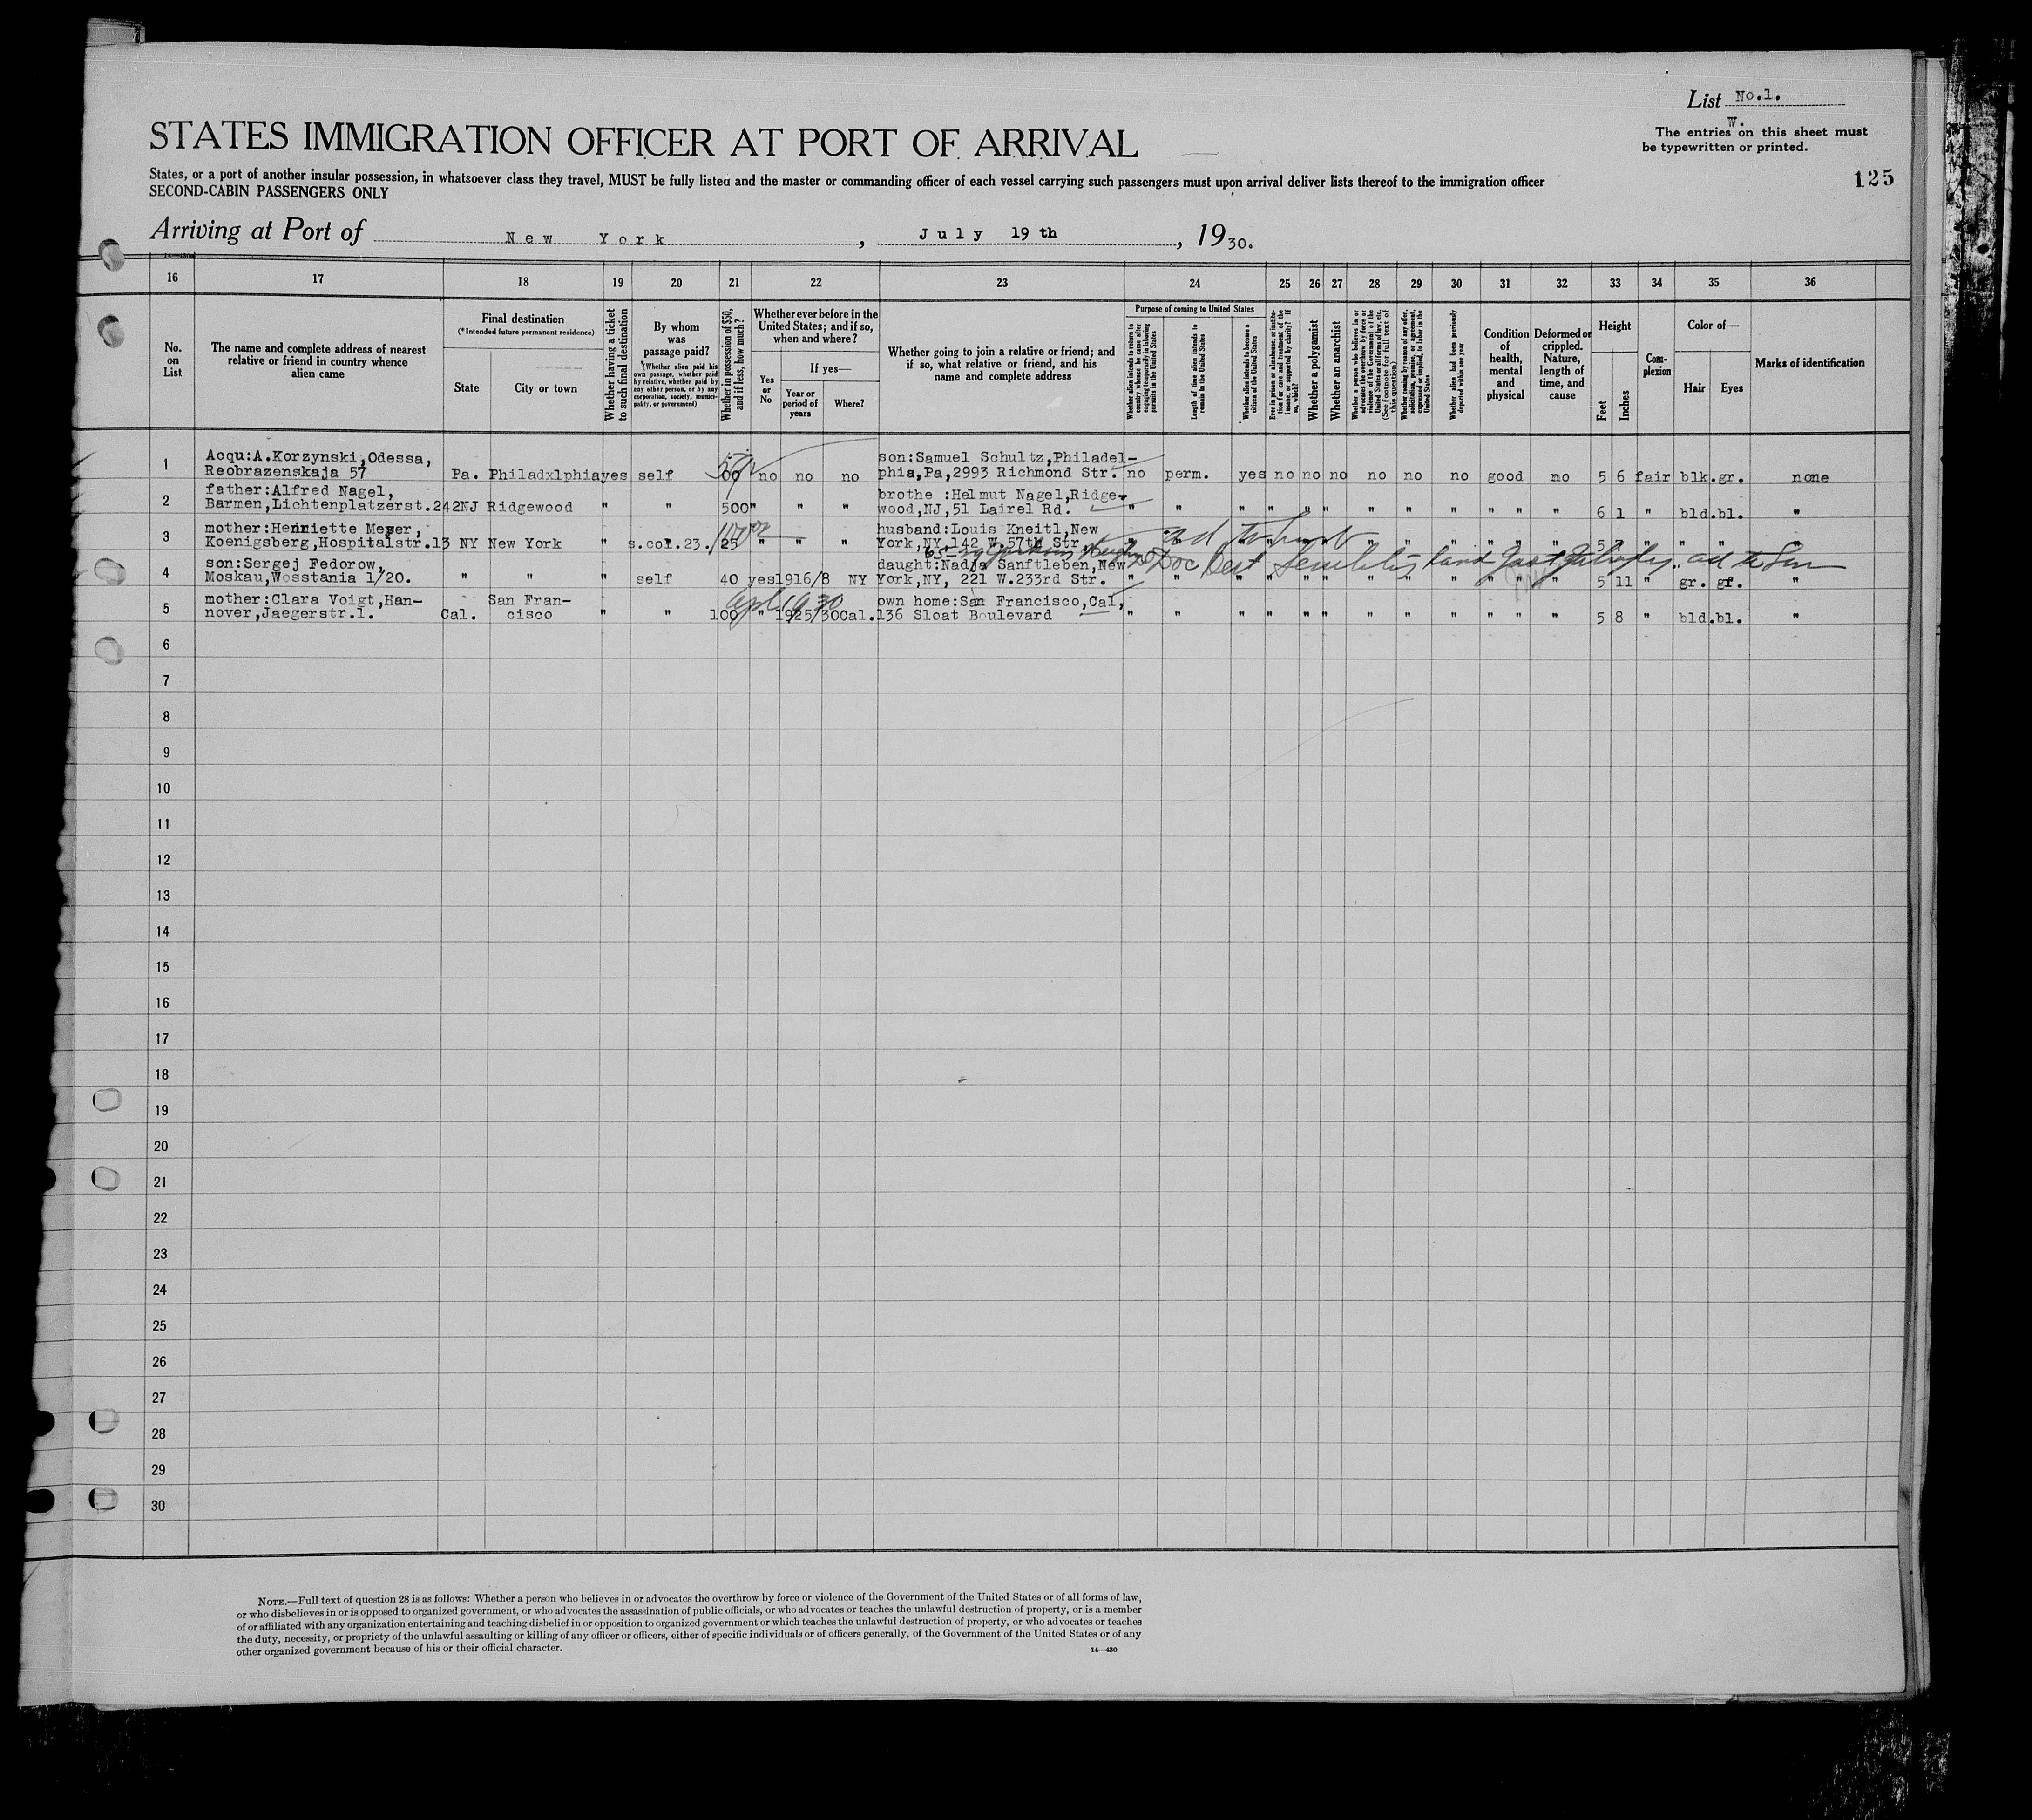 List No.1.
W.
The entries on this sheet must
be typewritten or printed.
STATES IMMIGRATION OFFICER AT PORT OF ARRIVAL
125
States, or a port of another insular possession, in whatsoever class they travel, MUST be fully listed and the master or commanding officer of each vessel carrying such passengers must upon arrival deliver lists thereof to the immigration officer
SECOND-CABIN PASSENGERS ONLY
Arriving at Port of New York, July 19th, 1930.
16 17 18 19 20 21 22 23 24 25 26 27 28 29 30 31 32 33 34 35 36
No. on List
The name and complete address of nearest
relative or friend in country whence
alien came
Final destination
(*Intended future permanent residence)
State
City or town
Whether having a ticket
to such final destination
By whom
was
passage paid?
(Whether alien paid his
own passage, whether paid
by relative, whether paid by
any other person, or by any
corporation, society, munici-
pality, or government)
Whether in possession of $50,
and if less, how much?
Whether ever before in the
United States; and if so,
when and where?
Yes
or
No
If yes—
Year or
period of
years
Where?
Whether going to join a relative or friend; and
if so, what relative or friend, and his
name and complete address
Purpose of coming to United States
Whether alien intends to return to
country whence he came after
engaging temporarily in laboring
pursuits in the United States
Length of time alien intends to
remain in the United States
Whether alien intends to become a
citizen of the United States
Ever in prison or almshouse, or institu-
tion for care and treatment of the
insane, or supported by charity? If
so, which?
Whether a polygamist
Whether an anarchist
Whether a person who believes in or
advocates the overthrow by force or
violence of the Government of the
United States or all forms of law, etc.
(See footnote for full text of
this question)
Whether coming by reason of any offer,
solicitation, promise, or agreement,
expressed or implied, to labor in the
United States
Whether alien had been previously
deported within one year
Condition
of
health,
mental
and
physical
Deformed or
crippled.
Nature,
length of
time, and
cause
Height
Feet
Inches
Com-
plexion
Color of—
Hair
Eyes
Marks of identification
Acqu:A.Korzynski,Odessa, son:Samuel Schultz,Philadel-
1 Reobrazenskaja 57 Pa. Philadxlphia yes self no no no phia,Pa,2993 Richmond Str. no perm. yes no no no no no no good no 5 6 fair blk. gr. none
father:Alfred Nagel, brothe :Helmut Nagel,Ridge-
2 Barmen,Lichtenplatzerst.242 NJ Ridgewood " " 500 " " " wood,NJ,51 Lairel Rd. " " " " " " " " " " " 6 1 " bld. bl. "
mother:Henriette Meyer, husband:Louis Kneitl,New
3 Koenigsberg,Hospitalstr.13 NY New York " s.col.23. 25 " " " York,NY,142 W.57th Str. " ad to husb " " " " " 5 " " " "
son:Sergej Fedorow, daught:Nadja Sanftleben,New
4 Moskau,Wosstania 1/20. " " " self 40 yes 1916/8 NY York,NY, 221 W.233rd Str. " " " " " " " " " " " 5 11 " gr. gr. "
mother:Clara Voigt,Han- San Fran- 1930 own home:San Francisco,Cal,
5 nover,Jaegerstr.1. Cal. cisco " " 100 " 1925/30 Cal. 136 Sloat Boulevard " " " " " " " " " " " 5 8 " bld. bl. "
6
7
8
9
10
11
12
13
14
15
16
17
18
19
20
21
22
23
24
25
26
27
28
29
30
NOTE.—Full text of question 28 is as follows: Whether a person who believes in or advocates the overthrow by force or violence of the Government of the United States or of all forms of law,
or who disbelieves in or is opposed to organized government, or who advocates the assassination of public officials, or who advocates or teaches the unlawful destruction of property, or is a member
of or affiliated with any organization entertaining and teaching disbelief in or opposition to organized government or which teaches the unlawful destruction of property, or who advocates or teaches
the duty, necessity, or propriety of the unlawful assaulting or killing of any officer or officers, either of specific individuals or of officers generally, of the Government of the United States or of any
other organized government because of his or their official character.
14—430